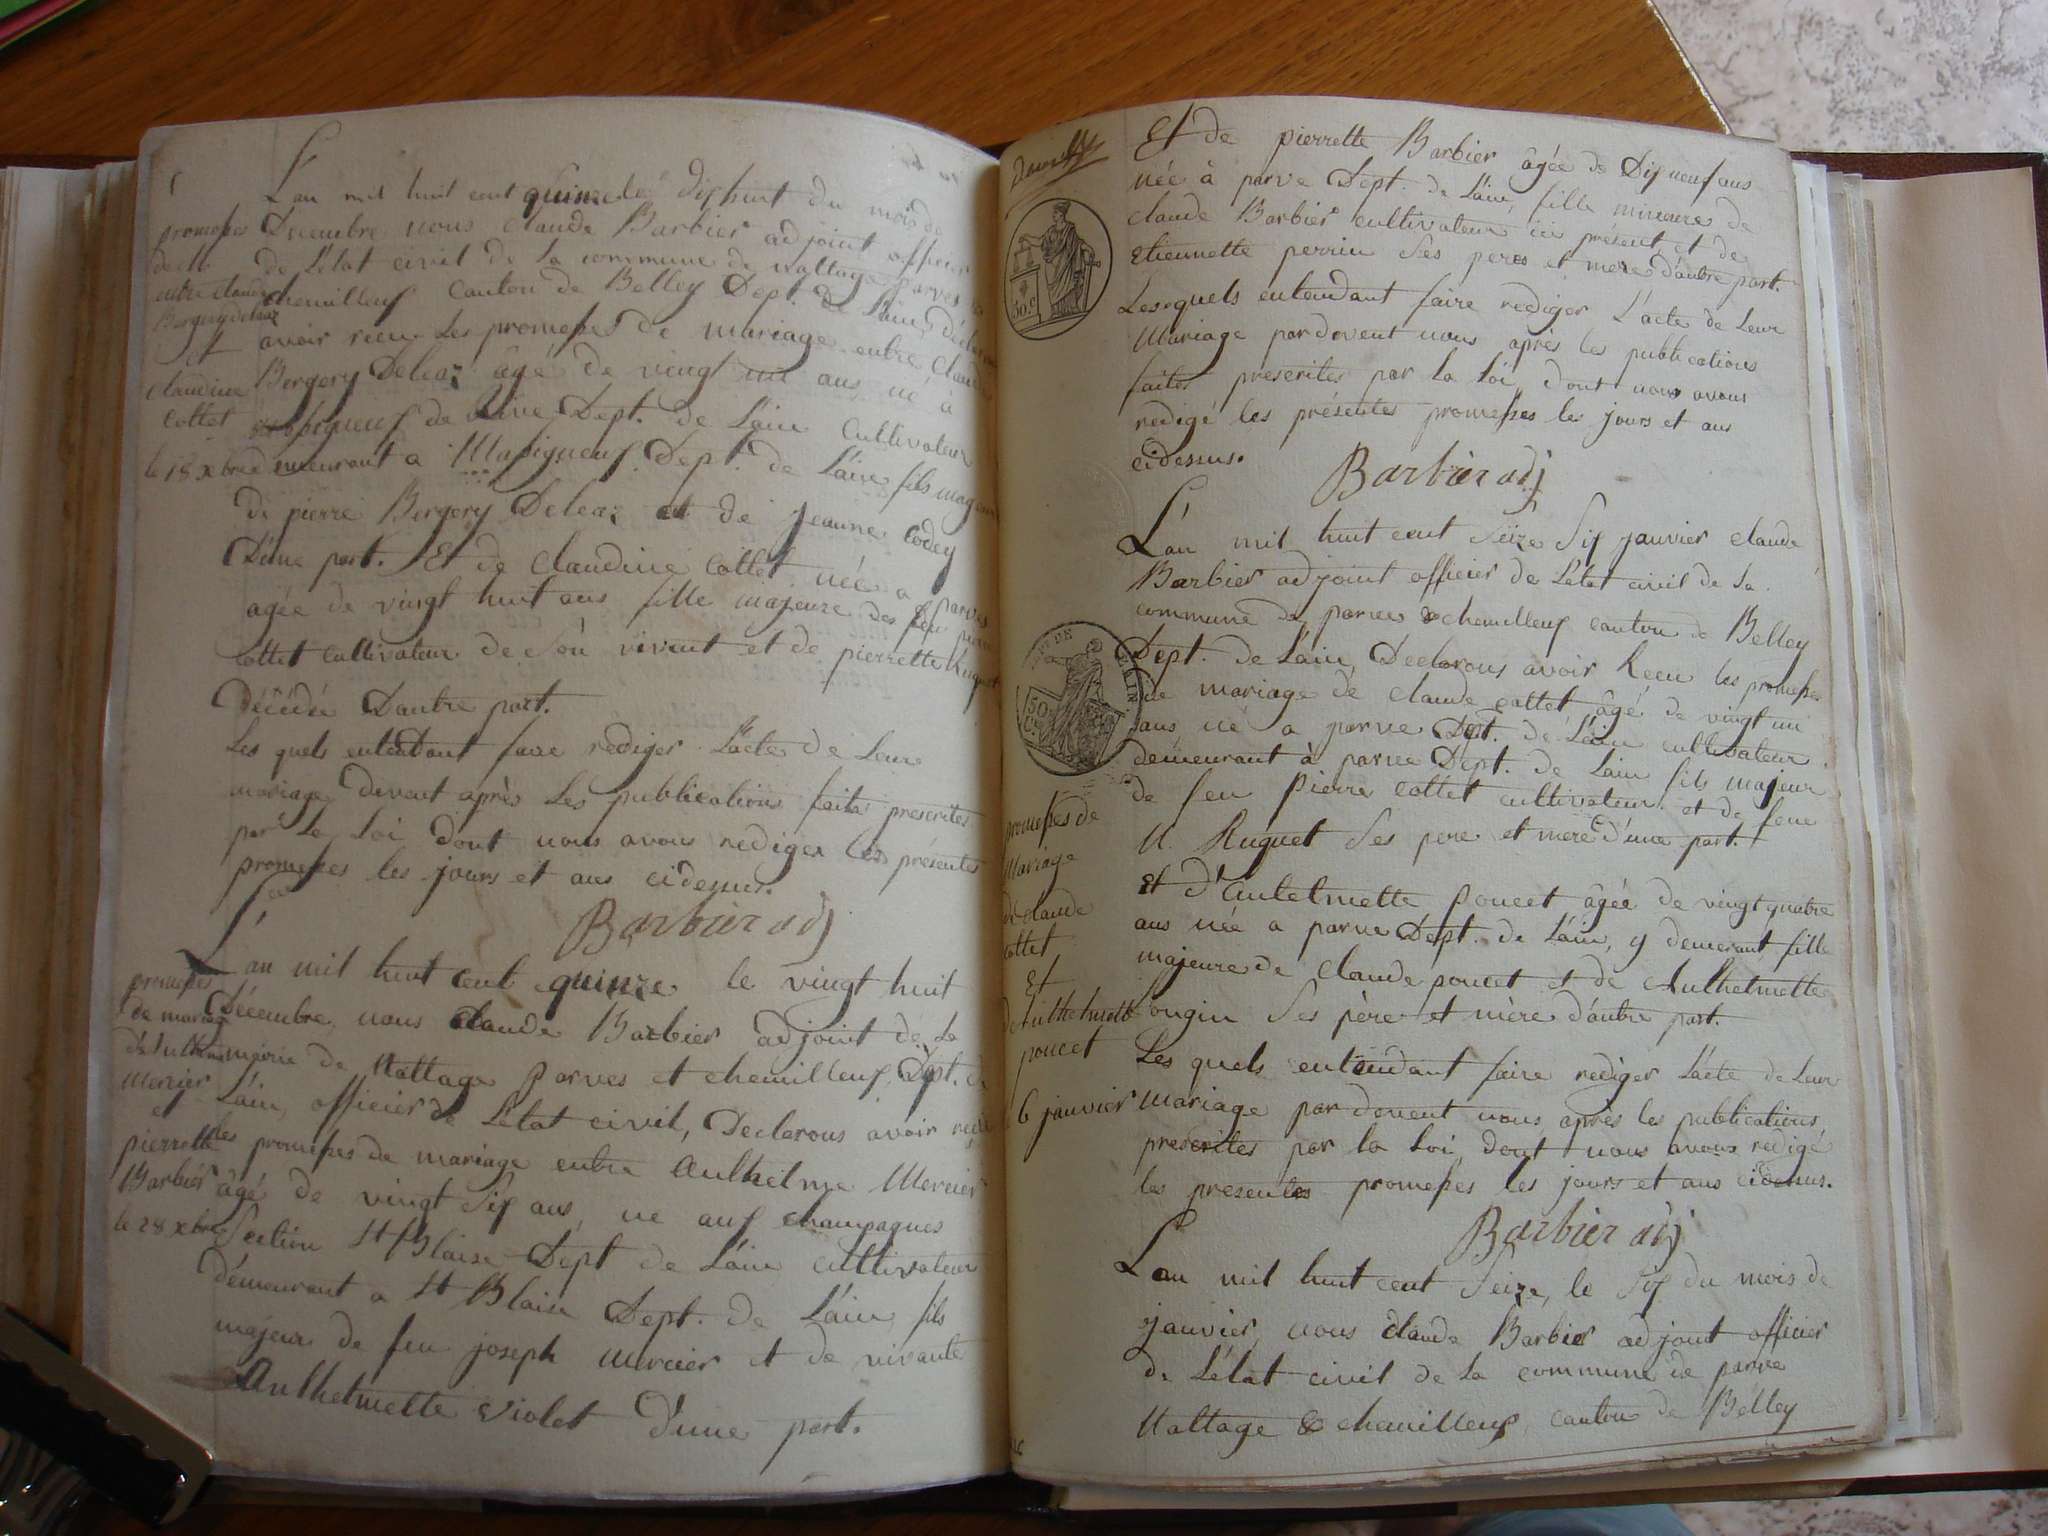 L'an mil huit cent quinze le dishuit du mois de
Decembre nous Claude Barbier adjoint officier
de L'état civil de la commune de nattage parves
chemilleuf canton de Belley Dept. de L'ain, déclarons
avoir recu les promesses de mariage entre Claude
Bergery Deleaz âgé de vingt un ans, né à
de Dept. de L'ain cultivateur
demeurant a Massigneuf Dept. de L'ain fils majeur
de pierre Bergery Deleaz et de jeanne Codey
D'une part. Et de Claudine Cottet née a parves
agée de vingt huit ans fille majeure des feu pierre
Cottet cultivateur de son vivant et de pierrette Ruguet
Décédé D'autre part.
Les quels entendant faire rediger L'acte de Leur
mariage devent après les publications faites prescrites
par la loi dont nous avons rediger les présentes
promesses les jours et ans cidessus.
Barbier adj
promesses
entre claude
Bergery deleaz
et
claudine
cottet
le 18 xbre
L'an mil huit cent quinze le vingt huit
Décembre nous Claude Barbier adjoint de la
mairie de Nattage parves et chemilleuf, Dpt. de
L'ain, officier de L'état civil, Declarons avoir recu
les promesses de mariage entre Anthelme Mercier
âgé de vingt six ans, né auf champagnes
Section St Blaise Dept de L'ain cultivateur
demeurant a St Blaise Dept. de L'ain, fils
majeur de feu joseph mercier et de vivante
Anthelmette Violet D'une part.
promesses
de mariage
d'Anthelme
Mercier
et
pierrette
Barbier
le 28 xbre
Et de pierrette Barbier âgée de Dix neuf ans
née à parve Dept. de L'ain, fille mineure de
claude Barbier cultivateur ici présent, et de
Etiennette perrin Ses peres et meres d'autre part.
Lesquels entendant faire rediger L'acte de Leur
Mariage pardevent nous après les publications
faites prescrites par la loi, dont nous avons
redigé les présentes promesses les jours et ans
cidessus.
Barbier adj
50 c
L'an mil huit cent Seize Six janvier claude
Barbier adjoint officier de L'état civil de la
commune de parves & chemilleuf canton de Belley
Dept. de L'ain, Declarons avoir Recu les promesses
de mariage de claude cottet âgé de vingt un
ans, né a parve Dpt. de L'ain cultivateur
demeurant à parve Dept. de L'ain fils majeur
de feu Pierre cottet cultivateur et de feue
M. Ruguet Ses pere et mere D'une part.
Et d'antelmette Poncet âgée de vingt quatre
ans née a parve Dept. de L'ain, y demeurant, fille
majeure de claude poncet et de Anthelmette
ougin Ses père et mère d'autre part.
Les quels entendant faire rediger L'acte de Leur
mariage par devent nous, après les publications,
prescrites par la loi, dont nous avons redigé
les presentes promesses les jours et ans cidessus.
Barbier adj
50
promesses de
Mariage
de claude
cottet
Et
d'Anthelmette
poncet
6 janvier
L'an mil huit cent Seize, le Six du mois de
janvier, nous claude Barbier adjoint officier
de L'état civil de la commune de parve
Nattage & chemilleuf, canton de Belley